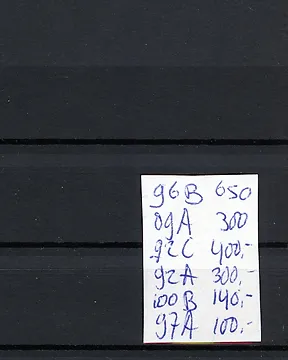 96B 650
09A 300
92C 400,-
92A 300,-
100B 140,-
97A 100,-